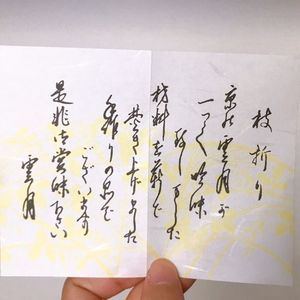 枝折り
京の雲月が
一つ一つ吟味
致しました
材料を薪で
焚き上げました
手作りの品で
ございます
是非御賞味下さい
雲月